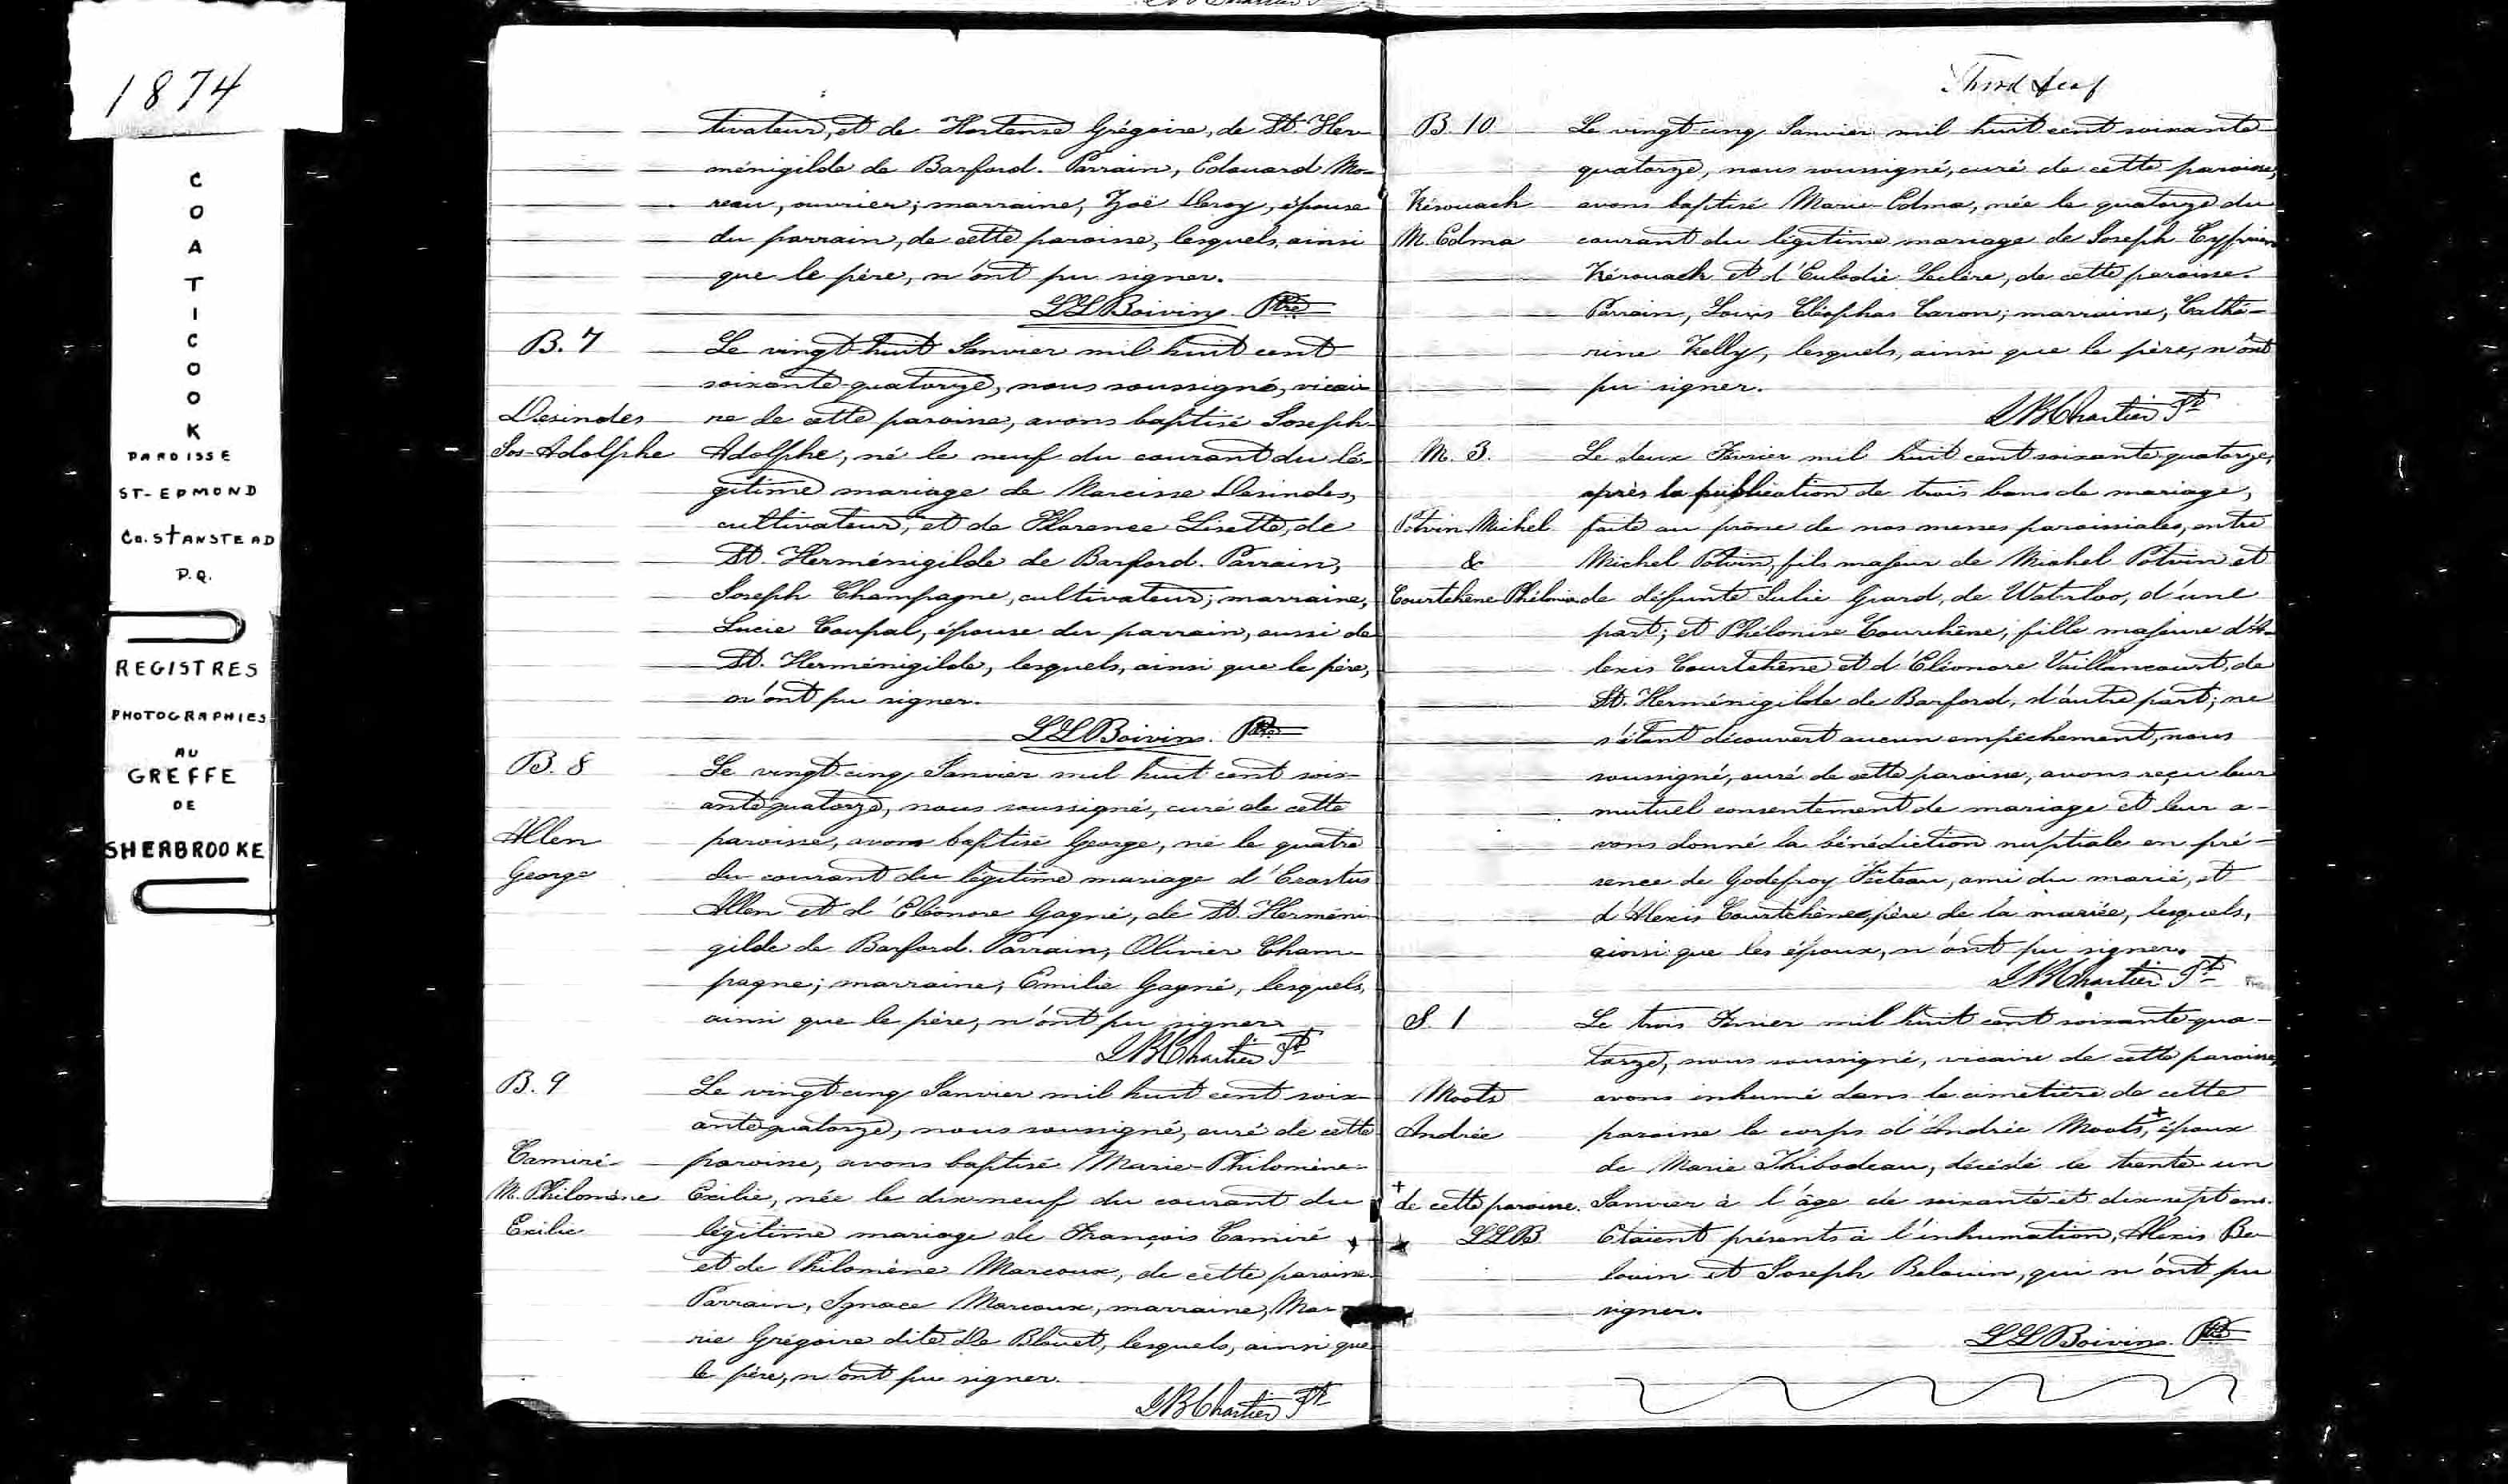 1874
COATICOOK
PAROISSE
ST-EDMOND
Co. STANSTEAD
P.Q.
REGISTRES
PHOTOGRAPHIES
AU
GREFFE
DE
SHERBROOKE
tivateur, et de Hortense Grégoire, de St. Her-
ménigilde de Barford. Parrain, Edouard Mo-
reau, ouvrier; marraine, Zoë Leroy, épouse
du parrain, de cette paroisse, lesquels, ainsi
que le père, n'ont pu signer.
LLBoivin Ptre
B. 7
Le vingt-huit Janvier mil huit cent
soixante-quatorze, nous soussigné, vicai-
Desindes
re de cette paroisse, avons baptisé Joseph-
Jos-Adolphe
Adolphe, né le neuf du courant du lé-
gitime mariage de Narcisse Desindes,
cultivateur, et de Florence Lisette, de
St. Herménigilde de Barford. Parrain,
Joseph Champagne, cultivateur; marraine,
Lucie Coupal, épouse du parrain, aussi de
St. Herménigilde, lesquels, ainsi que le père,
n'ont pu signer.
LLBoivin. Ptre
B. 8
Le vingt-cinq Janvier mil huit cent soix-
ante-quatorze, nous soussigné, curé de cette
Allen
paroisse, avons baptisé George, né le quatre
George
du courant du légitime mariage d'Erastus
Allen et d'Eléonore Gagné, de St. Herméni-
gilde de Barford. Parrain, Olivier Cham-
pagne; marraine, Emilie Gagné, lesquels,
ainsi que le père, n'ont pu signer.
JBChartier Ptr
B. 9
Le vingt-cinq Janvier mil huit cent soix-
ante-quatorze, nous soussigné, curé de cette
Camiré
paroisse, avons baptisé Marie-Philomène-
M. Philomène
Exilie, née le dix-neuf du courant du
Exilie
légitime mariage de François Camiré
et de Philomène Marcoux, de cette paroisse.
Parrain, Ignace Marcoux, marraine, Ma-
rie Grégoire dite De Blouet, lesquels, ainsi que
le père, n'ont pu signer.
JBChartier Ptr
Third leaf
B. 10
Le vingt-cinq Janvier mil huit cent soixante-
quatorze, nous soussigné, curé de cette paroisse,
Kérouack
avons baptisé Marie-Edma, née le quatorze du
M. Edma
courant du légitime mariage de Joseph Cyprien
Kérouack et d'Eulodie Leclère, de cette paroisse.
Parrain, Louis Cléophas Caron; marraine, Cathé-
rine Kelly, lesquels, ainsi que le père, n'ont
pu signer.
JBChartier Ptr
M. 3.
Le deux Février mil huit cent soixante-quatorze,
après la publication de trois bans de mariage,
Potvin Michel
faite au prône de nos messes paroissiales, entre
&
Michel Potvin, fils majeur de Michel Potvin et
Courtchêne Phélonise
de défunte Julie Giard, de Waterloo, d'une
part; et Phélonise Courchêne, fille majeure d'A-
lexis Courtchêne et d'Eléonore Vaillancourt, de
St. Herménigilde de Barford, d'autre part; ne
s'étant découvert aucun empêchement, nous
soussigné, curé de cette paroisse, avons reçu leur
mutuel consentement de mariage et leur a-
vons donné la bénédiction nuptiale en pré-
sence de Godefroy Fecteau, ami du marié, et
d'Alexis Courtchêne, père de la mariée, lesquels,
ainsi que les époux, n'ont pu signer.
JBChartier Ptr
S. 1
Le trois Février mil huit cent soixante-qua-
torze, nous soussigné, vicaire de cette paroisse,
Moots
avons inhumé dans le cimetière de cette
Andrée
paroisse le corps d'Andrée Moots,+ époux
de Marie Thibodeau, décédé le trente-un
+ de cette paroisse.
Janvier à l'âge de soixante et dix-sept ans.
LLB
Etaient présents à l'inhumation, Alexis Be-
louin et Joseph Belouin, qui n'ont pu
signer.
LLBoivin. Ptre